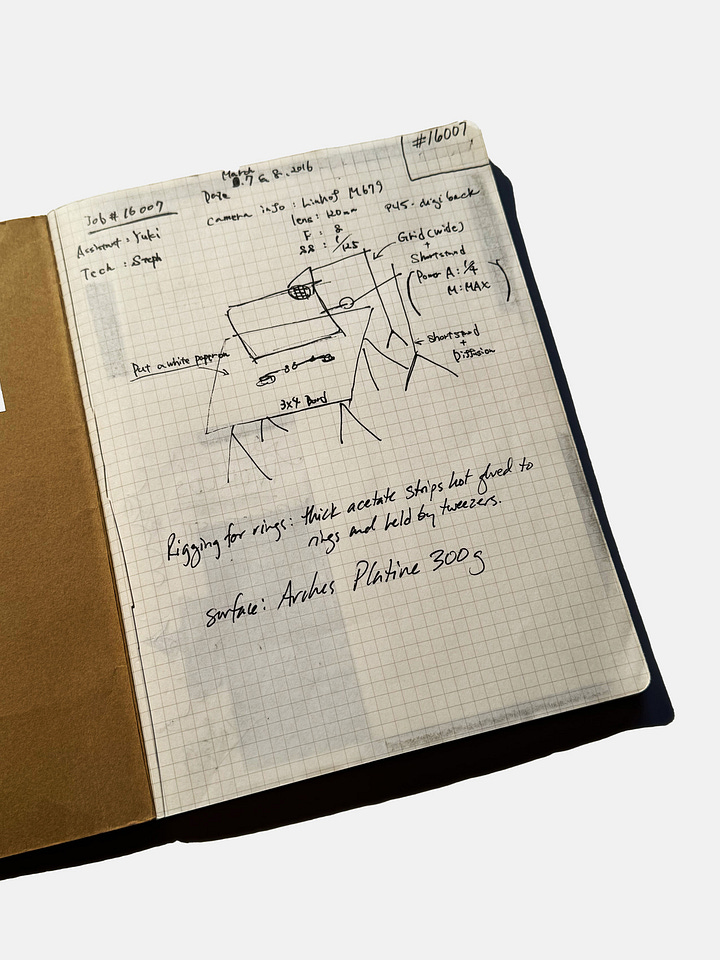 #16007
March
Date 7 & 8. 2016
Job # 16007
Assistant : Yuki
Tech : Steph
camera info : Linhof M679
P45 - digi back
lens : 120mm
F : 8
SS : 1/125
Grid (wide)
+
Shortstand
(Power A : 1/4
M : MAX)
Shortstand
+
Diffusion
Put a white paper on
3x4 Board
Rigging for rings: thick acetate strips hot glued to
rings and held by tweezers.
surface: Arches Platine 300g